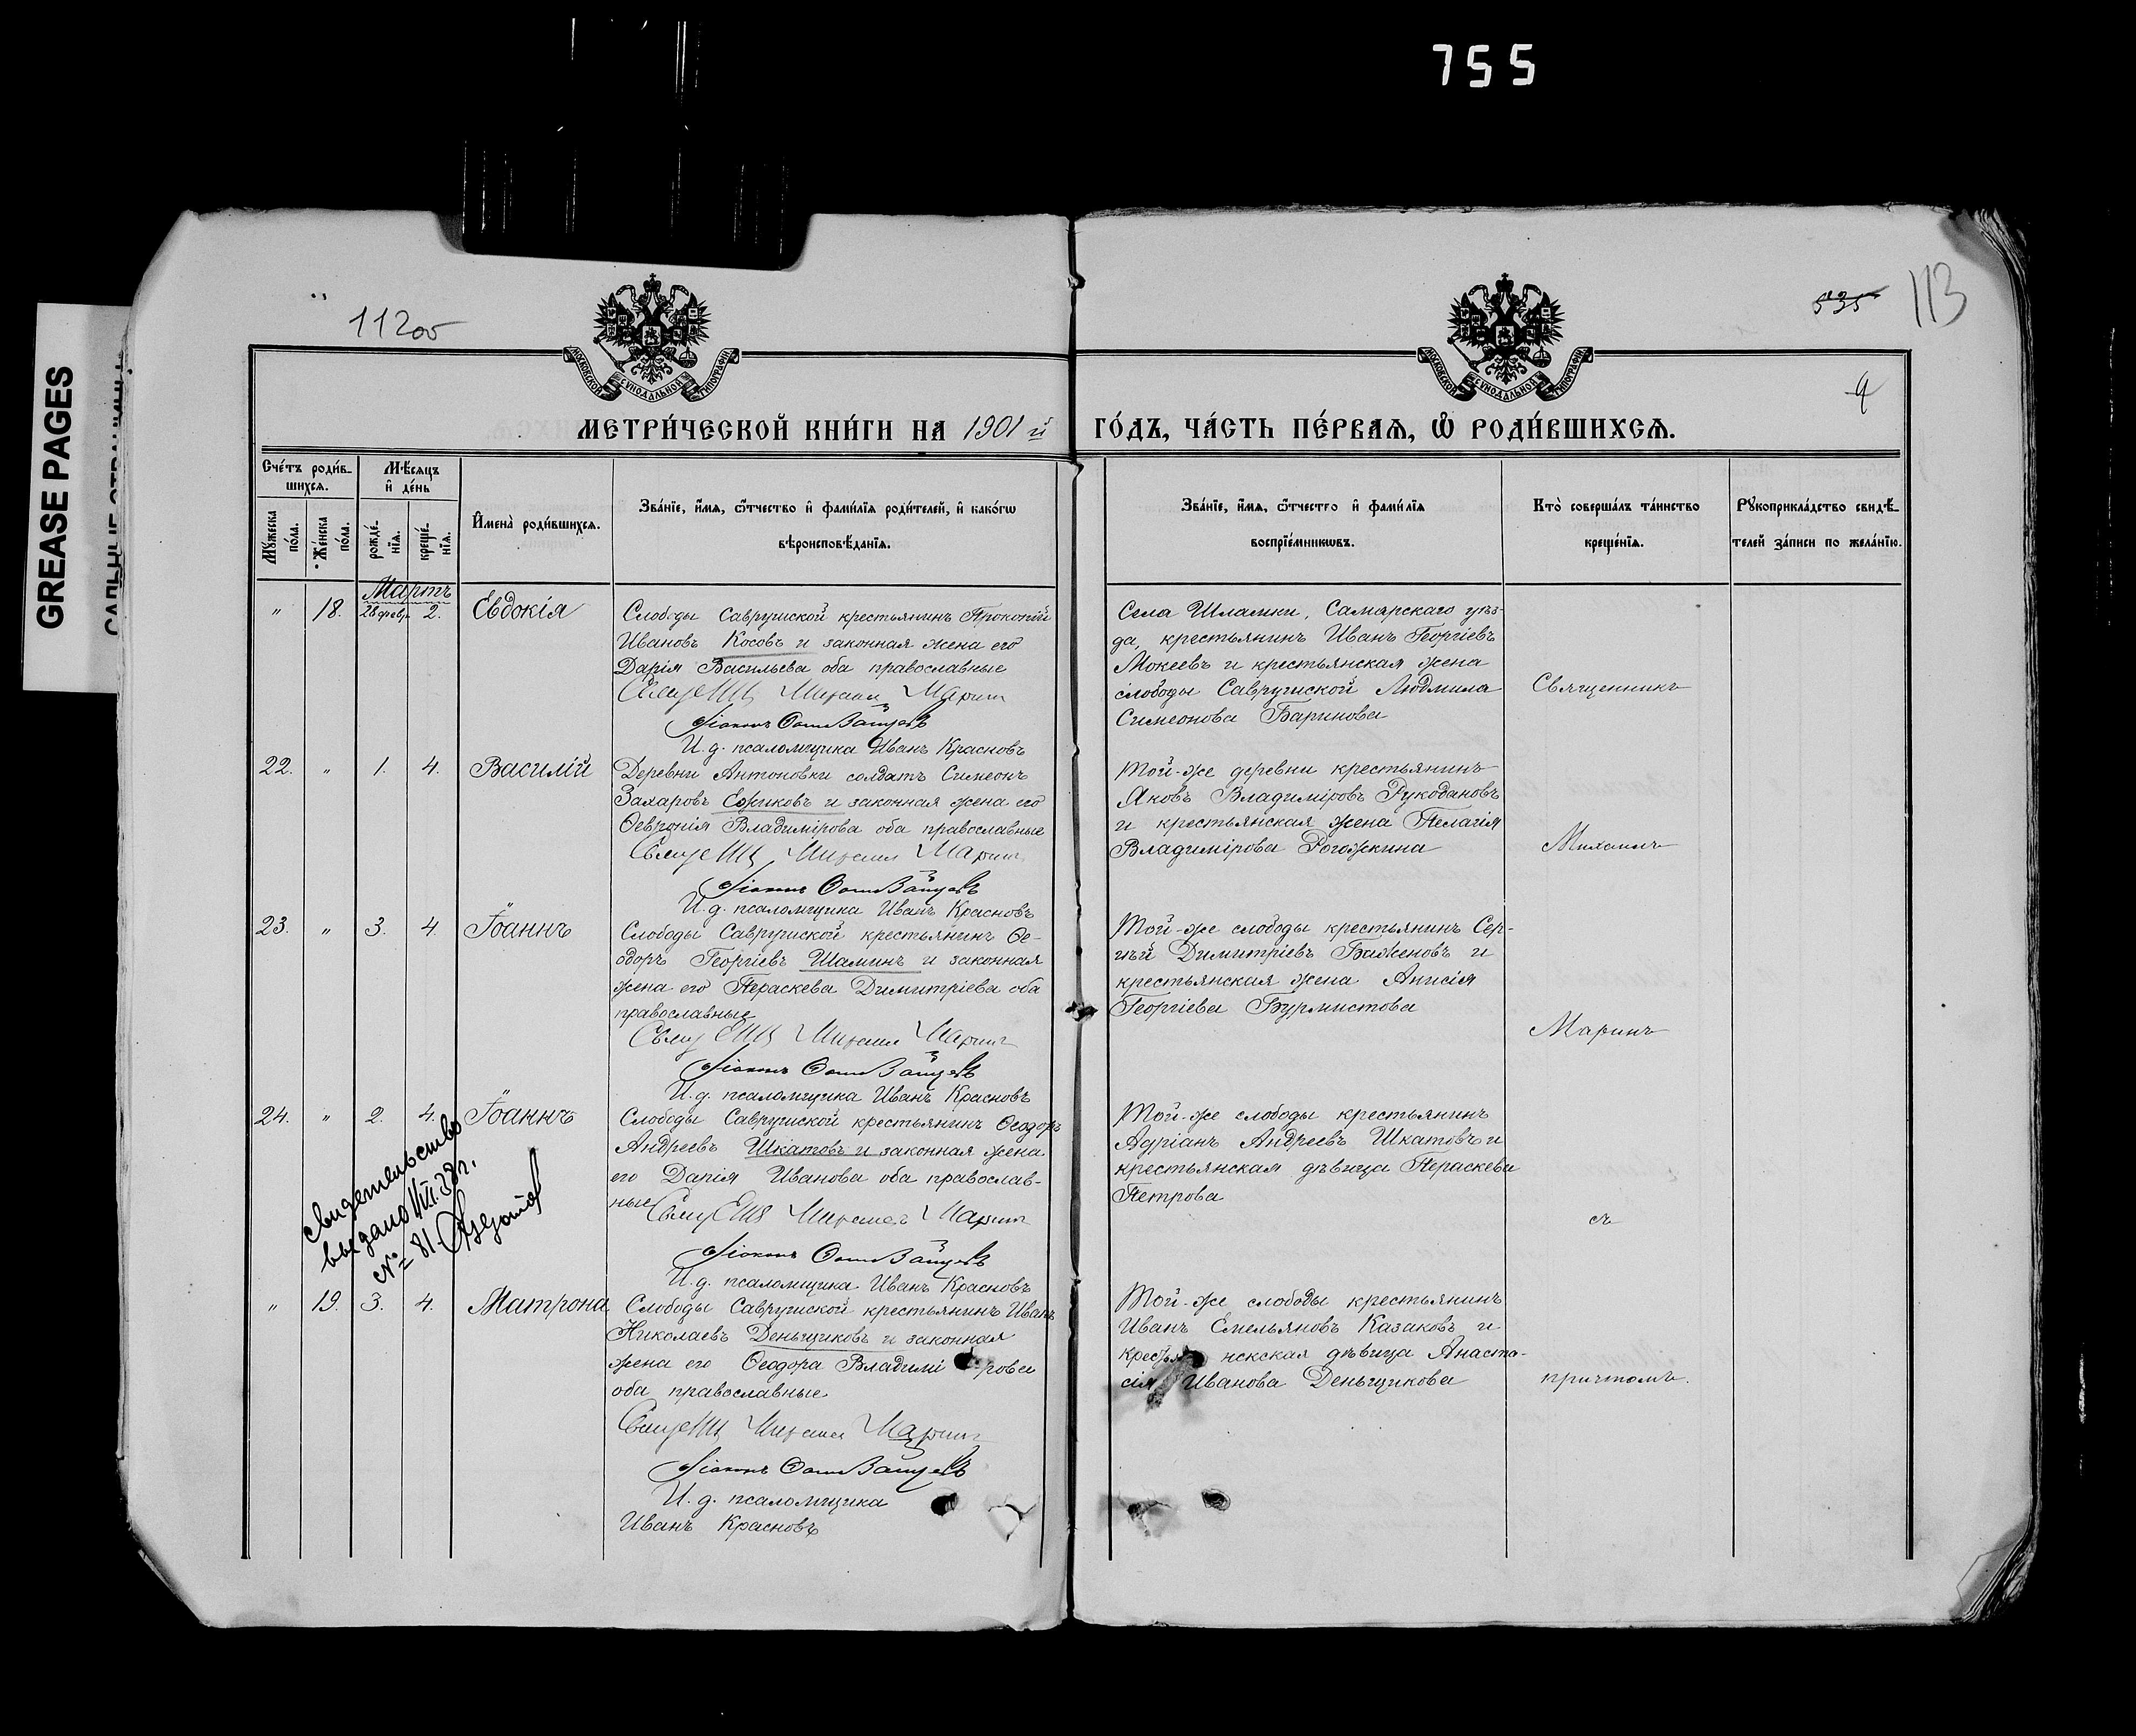 755
GREASE PAGES
112об
535
113
9
МОСКОВСКОЙ СѴНОДАЛЬНОЙ ТИПОГРАФІИ
МОСКОВСКОЙ СѴНОДАЛЬНОЙ ТИПОГРАФІИ
МЕТРИ́ЧЕСКОЙ КНИ́ГИ НА 1901 й
ГО́ДЪ, ЧА́СТЬ ПЕ́РВАѦ, Ѡ҆ РОДИ́ВШИХСѦ.
Сче́тъ роди́в-
шихсѧ.
Мѣ́сѧцъ
и҆ де́нь
Мꙋ́жеска
по́ла.
Же́нска
по́ла.
рожде́-
нїѧ.
креще́-
нїѧ.
И҆мена̀ роди́вшихсѧ.
Зва́нїе, и҆́мѧ, ѻ҆́тчество и҆ фами́лїѧ роди́телей, и҆ како́гѡ
вѣроисповѣ́данїѧ.
Зва́нїе, и҆́мѧ, ѻ҆́тчество и҆ фами́лїѧ
воспрїе́мникѡвъ.
Кто̀ соверша́лъ та́инство
креще́нїѧ.
Рꙋкоприкла́дство свидѣ́-
телей за́писи по жела́нїю.
Мартъ
" 18. 28 февр. 2. Евдокія
Слободы Саврушской крестьянинъ Прокопій
Ивановъ Косовъ и законная жена его
Дарія Васильева оба православные
Священ. Михаил Марин
Діаконъ Зайцевъ
И. д. псаломщика Иванъ Красновъ
Села Шламки, Самарскаго уѣз-
да, крестьянинъ Иванъ Георгіевъ
Мокеевъ и крестьянская жена
слободы Саврушской Людмила
Симеонова Баринова
Священникъ
22. " 1. 4. Василій
Деревни Антоновки солдатъ Симеонъ
Захаровъ Ежиковъ и законная жена его
Ѳевронія Владимірова оба православные
Священ. Михаил Марин
Діаконъ Зайцевъ
И. д. псаломщика Иванъ Красновъ
Той-же деревни крестьянинъ
Яковъ Владиміровъ Рукодановъ
и крестьянская жена Пелагія
Владимірова Рогожкина
Михаилъ
23. " 3. 4. Іоаннъ
Слободы Саврушской крестьянинъ Ѳе-
одоръ Георгіевъ Шаминъ и законная
жена его Параскева Димитріева оба
православные
Священ. Михаил Марин
Діаконъ Зайцевъ
И. д. псаломщика Иванъ Красновъ
Той-же слободы крестьянинъ Сер-
гѣй Димитріевъ Баженовъ и
крестьянская жена Анисія
Георгіева Бурмистова
Маринъ
24. " 2. 4. Іоаннъ
Слободы Саврушской крестьянинъ Ѳеодоръ
Андреевъ Шкатовъ и законная жена
его Дарія Иванова оба православ-
ные Священ. Михаил Марин
Діаконъ Зайцевъ
И. д. псаломщика Иванъ Красновъ
Той-же слободы крестьянинъ
Адріанъ Андреевъ Шкатовъ и
крестьянская дѣвица Параскева
Петрова
съ
свидетельство
выдано 1/III.38г.
№ 81.
" 19. 3. 4. Матрона
Слободы Саврушской крестьянинъ Иванъ
Николаевъ Деньщиковъ и законная
жена его Ѳеодора Владимірова
оба православные
Священ. Михаил Марин
Діаконъ Зайцевъ
И. д. псаломщика
Иванъ Красновъ
Той-же слободы крестьянинъ
Иванъ Емельяновъ Казаковъ и
крестьянская дѣвица Анаста-
сія Иванова Деньщикова
причтомъ.